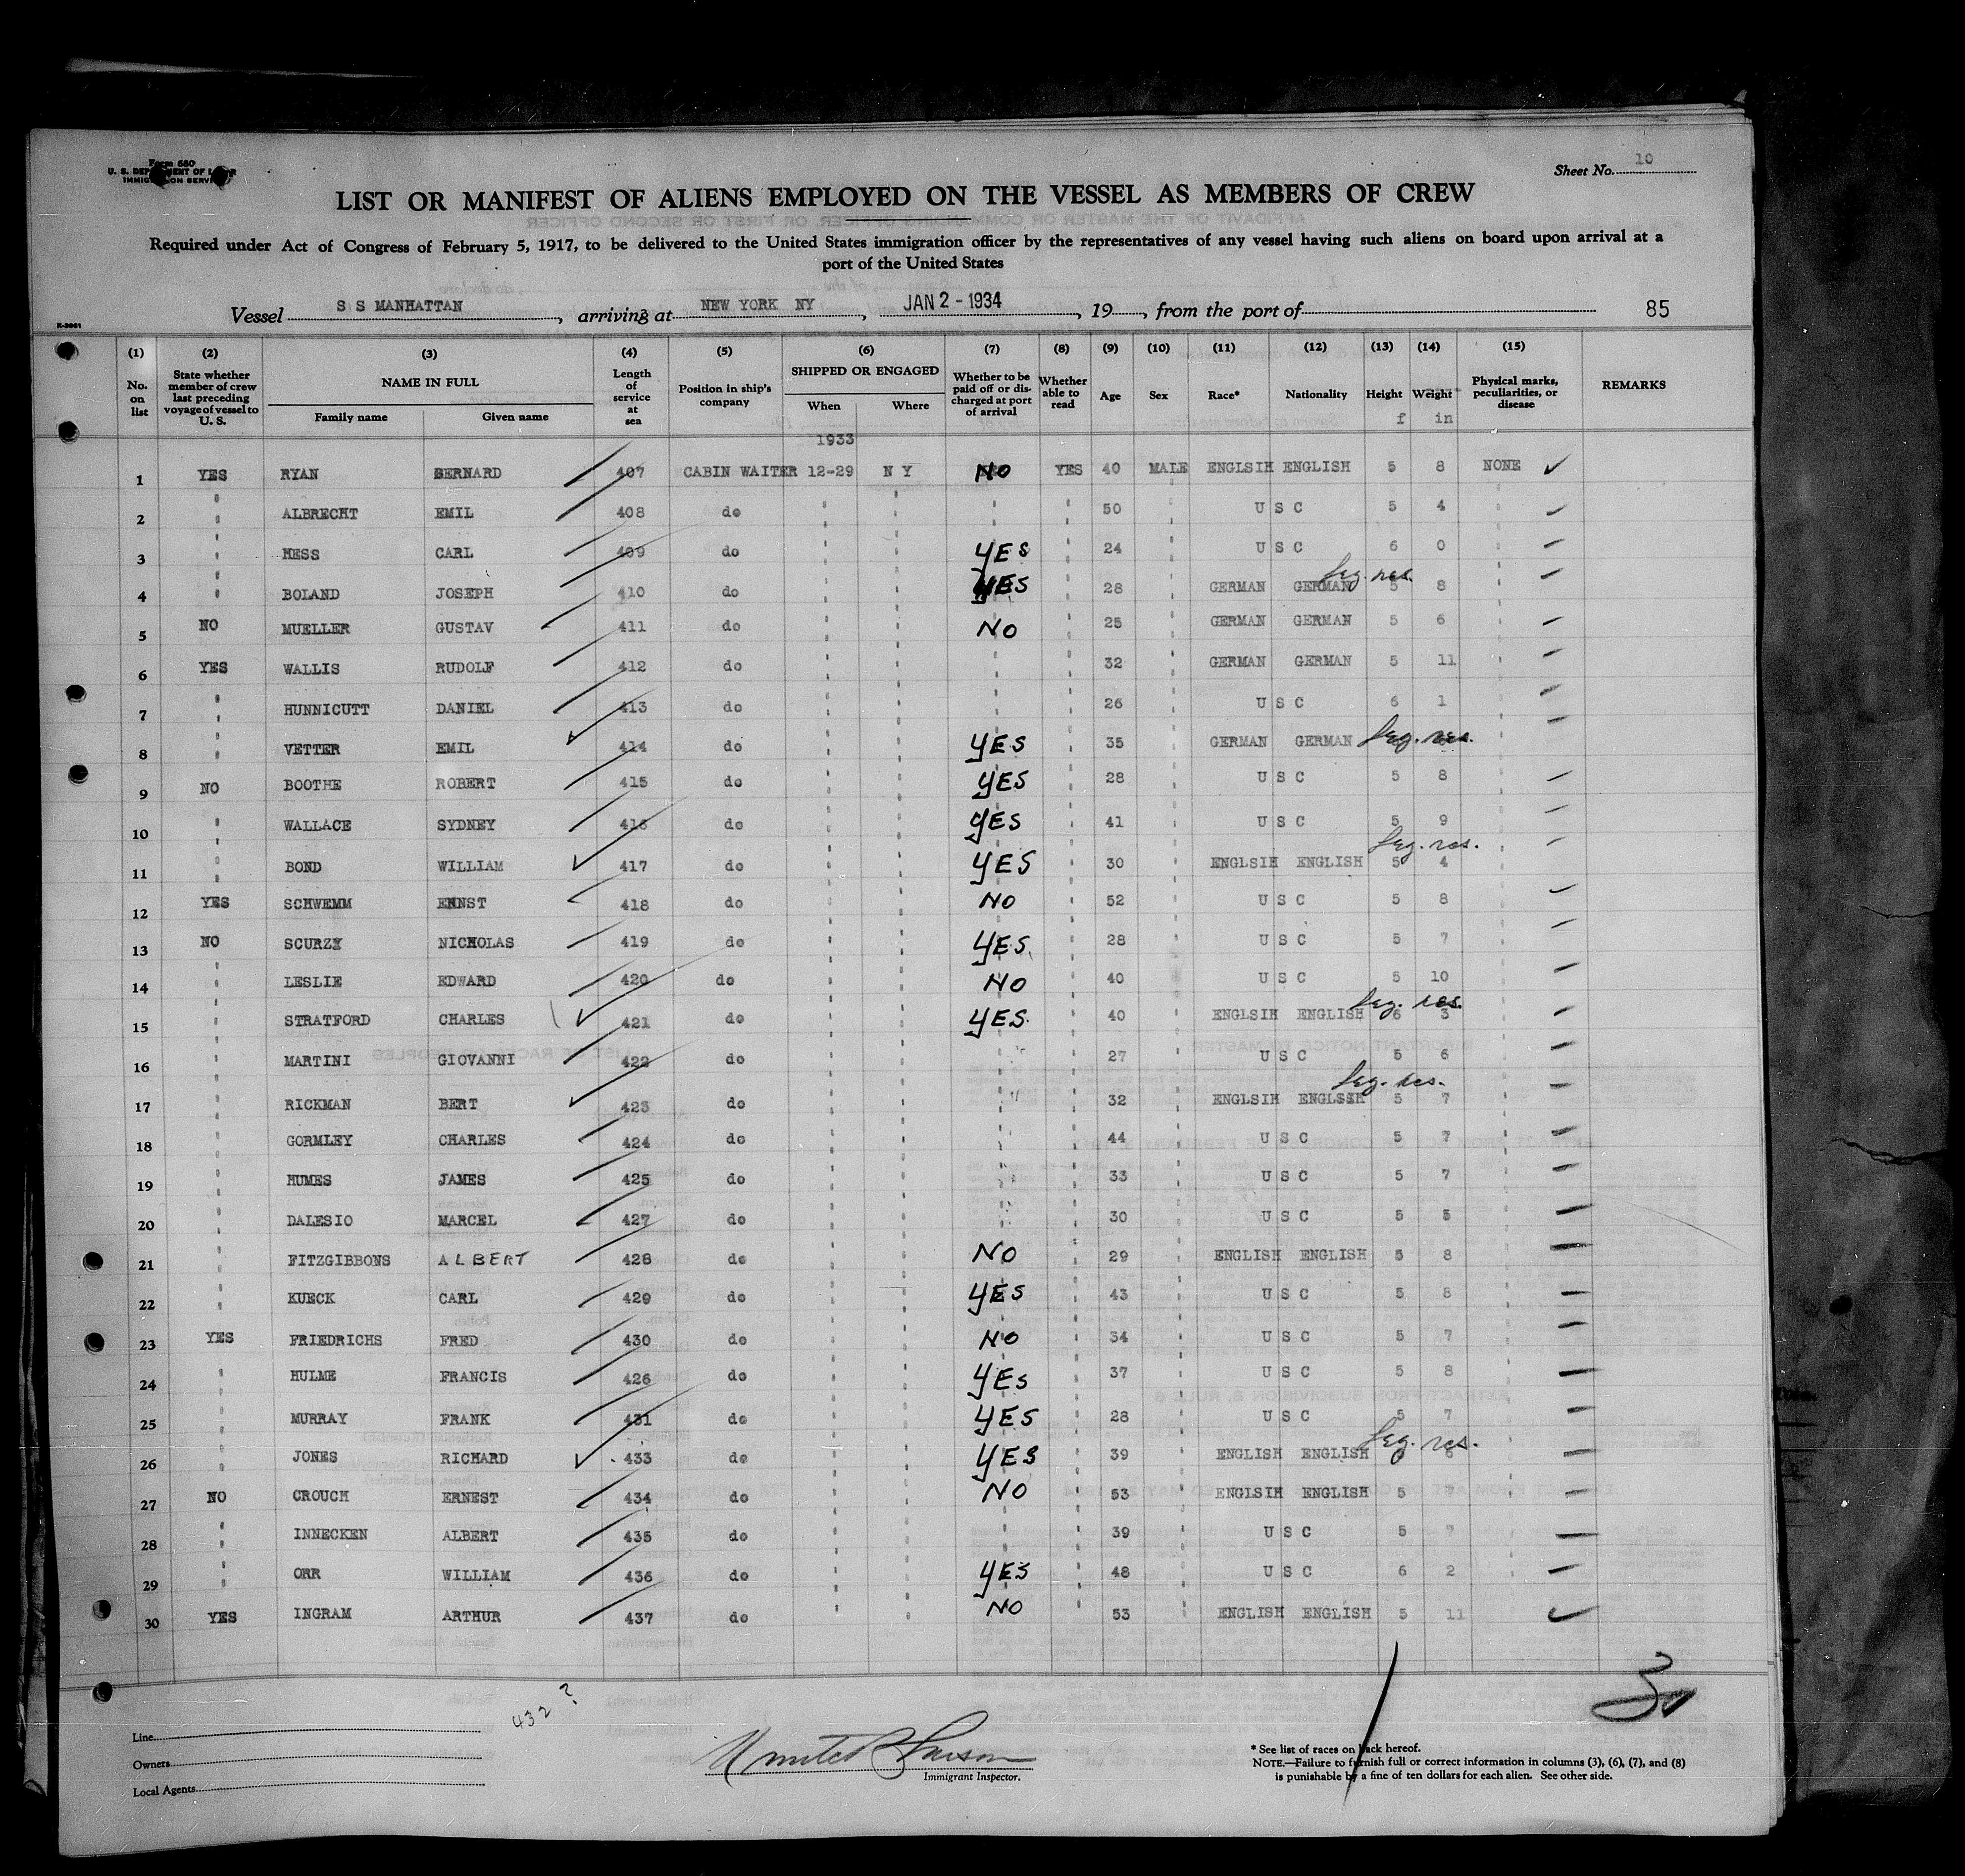 Form 680
U. S. DEPARTMENT OF LABOR
IMMIGRATION SERVICE
Sheet No. 10
LIST OR MANIFEST OF ALIENS EMPLOYED ON THE VESSEL AS MEMBERS OF CREW
Required under Act of Congress of February 5, 1917, to be delivered to the United States immigration officer by the representatives of any vessel having such aliens on board upon arrival at a
port of the United States
Vessel S S MANHATTAN, arriving at NEW YORK NY, JAN 2 - 1934, 19, from the port of 85
(1) (2) (3) (4) (5) (6) (7) (8) (9) (10) (11) (12) (13) (14) (15)
No. on list State whether member of crew last preceding voyage of vessel to U. S. NAME IN FULL Family name Given name Length of service at sea Position in ship's company SHIPPED OR ENGAGED When Where Whether to be paid off or discharged at port of arrival Whether able to read Age Sex Race* Nationality Height Weight Physical marks, peculiarities, or disease REMARKS
f in
1933
1 YES RYAN BERNARD 407 CABIN WAITER 12-29 N Y NO YES 40 MALE ENGLSIH ENGLISH 5 8 NONE ✓
2 " ALBRECHT EMIL 408 do " " " " 50 " U S C 5 4 "
3 " HESS CARL 409 do " " YES " 24 " U S C 6 0 "
leg. res.
4 " BOLAND JOSEPH 410 do " " YES " 28 " GERMAN GERMAN 5 8 "
5 NO MUELLER GUSTAV 411 do " " NO " 25 " GERMAN GERMAN 5 6 "
6 YES WALLIS RUDOLF 412 do " " " " 32 " GERMAN GERMAN 5 11 "
7 " HUNNICUTT DANIEL 413 do " " " " 26 " U S C 6 1 "
8 " VETTER EMIL 414 do " " YES " 35 " GERMAN GERMAN leg. res. "
9 NO BOOTHE ROBERT 415 do " " YES " 28 " U S C 5 8 "
10 " WALLACE SYDNEY 416 do " " YES " 41 " U S C 5 9 "
leg. res.
11 " BOND WILLIAM 417 do " " YES " 30 " ENGLSIH ENGLISH 5 4 "
12 YES SCHWEMM ERNST 418 do " " NO " 52 " U S C 5 8 "
13 NO SCURZY NICHOLAS 419 do " " YES " 28 " U S C 5 7 "
14 " LESLIE EDWARD 420 do " " NO " 40 " U S C 5 10 "
leg. res.
15 " STRATFORD CHARLES 421 do " " YES " 40 " ENGLSIH ENGLISH 6 3 "
16 " MARTINI GIOVANNI 422 do " " " " 27 " U S C 5 6 "
leg. res.
17 " RICKMAN BERT 423 do " " " " 32 " ENGLSIH ENGLSIH 5 7 "
18 " GORMLEY CHARLES 424 do " " " 44 " U S C 5 7 "
19 " HUMES JAMES 425 do " " " " 33 " U S C 5 7 "
20 " DALESIO MARCEL 427 do " " " " 30 " U S C 5 5 "
21 " FITZGIBBONS ALBERT 428 do " " NO " 29 " ENGLISH ENGLISH 5 8 "
22 " KUECK CARL 429 do " " YES " 43 " U S C 5 8 "
23 YES FRIEDRICHS FRED 430 do " " NO " 34 " U S C 5 7 "
24 " HULME FRANCIS 426 do " " YES " 37 " U S C 5 8 "
25 " MURRAY FRANK 431 do " " YES " 28 " U S C 5 7 "
leg. res.
26 " JONES RICHARD 433 do " " YES " 39 " ENGLISH ENGLISH "
27 NO CROUCH ERNEST 434 do " " NO " 53 " ENGLSIH ENGLISH 5 7 "
28 " INNECKEN ALBERT 435 do " " " " 39 " U S C 5 7 "
29 " ORR WILLIAM 436 do " " YES " 48 " U S C 6 2 "
30 YES INGRAM ARTHUR 437 do " " NO " 53 " ENGLISH ENGLISH 5 11 ✓
30
432 ?
Line
Owners
Local Agents
Immigrant Inspector.
* See list of races on back hereof.
NOTE.—Failure to furnish full or correct information in columns (3), (6), (7), and (8)
is punishable by a fine of ten dollars for each alien. See other side.